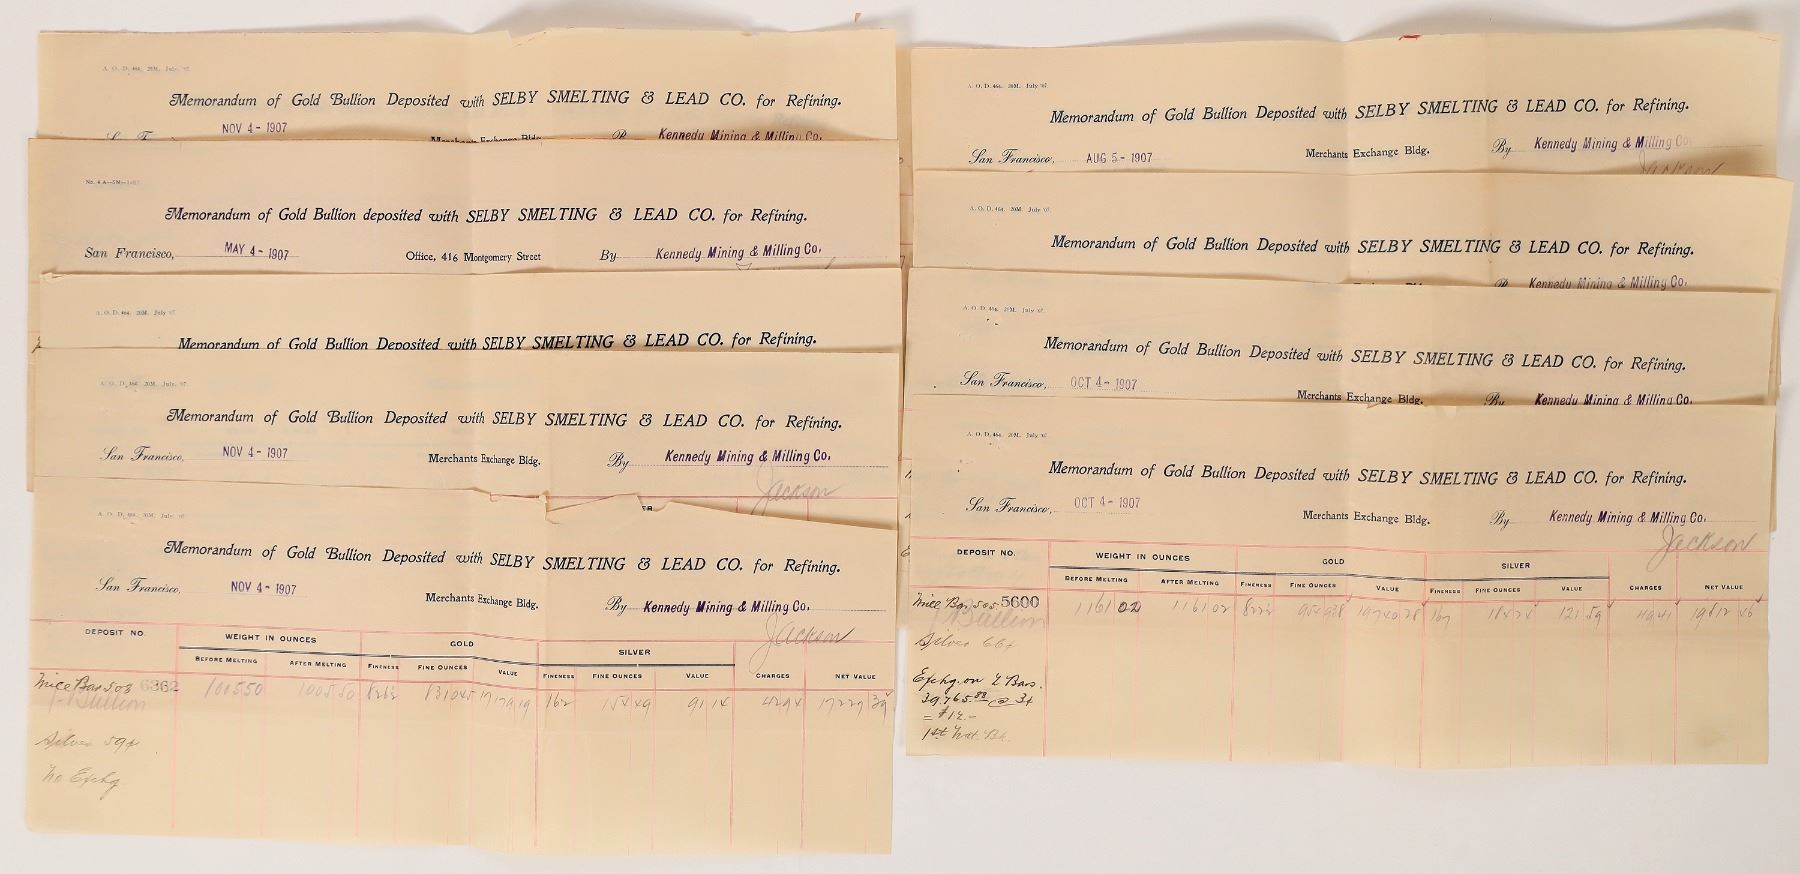 A. O. D. 464. 20M. July '07.
Memorandum of Gold Bullion Deposited with SELBY SMELTING & LEAD CO. for Refining.
NOV 4 - 1907 Kennedy Mining & Milling Co.
Memorandum of Gold Bullion deposited with SELBY SMELTING & LEAD CO. for Refining.
San Francisco, MAY 4 - 1907 Office, 416 Montgomery Street By Kennedy Mining & Milling Co.
A. O. D. 464. 20M. July '07.
Memorandum of Gold Bullion Deposited with SELBY SMELTING & LEAD CO. for Refining.
A. O. D. 464. 20M. July '07.
Memorandum of Gold Bullion Deposited with SELBY SMELTING & LEAD CO. for Refining.
San Francisco, NOV 4 - 1907 Merchants Exchange Bldg. By Kennedy Mining & Milling Co.
Jackson
A. O. D. 464. 20M. July '07.
Memorandum of Gold Bullion Deposited with SELBY SMELTING & LEAD CO. for Refining.
San Francisco, NOV 4 - 1907 Merchants Exchange Bldg. By Kennedy Mining & Milling Co.
Jackson
DEPOSIT NO. WEIGHT IN OUNCES GOLD SILVER
BEFORE MELTING AFTER MELTING FINENESS FINE OUNCES VALUE FINENESS FINE OUNCES VALUE CHARGES NET VALUE
Mill Bar 508 6362 1005 50 1005 50 826½ 831 045 17179 19 162 154 49 91 14 42 94 17227 39
Bullion
Silver 59¢
No Exchg
A. O. D. 464. 20M. July '07.
Memorandum of Gold Bullion Deposited with SELBY SMELTING & LEAD CO. for Refining.
San Francisco, AUG 5 - 1907 Merchants Exchange Bldg. By Kennedy Mining & Milling Co.
Jackson
A. O. D. 464. 20M. July '07.
Memorandum of Gold Bullion Deposited with SELBY SMELTING & LEAD CO. for Refining.
Kennedy Mining & Milling Co.
A. O. D. 464. 20M. July '07.
Memorandum of Gold Bullion Deposited with SELBY SMELTING & LEAD CO. for Refining.
San Francisco, OCT 4 - 1907 Merchants Exchange Bldg. By Kennedy Mining & Milling Co.
A. O. D. 464. 20M. July '07.
Memorandum of Gold Bullion Deposited with SELBY SMELTING & LEAD CO. for Refining.
San Francisco, OCT 4 - 1907 Merchants Exchange Bldg. By Kennedy Mining & Milling Co.
Jackson
DEPOSIT NO. WEIGHT IN OUNCES GOLD SILVER
BEFORE MELTING AFTER MELTING FINENESS FINE OUNCES VALUE FINENESS FINE OUNCES VALUE CHARGES NET VALUE
Mill Bar 505 5600 1161 02 1161 02 822½ 954 938 19740 28 167 184 24 121 59 49 41 19812 46
Bullion
Silver 66¢
Exchg. on 2 Bars.
39,765.88 @ 3¢
= $12.-
1st Nat. Bk.